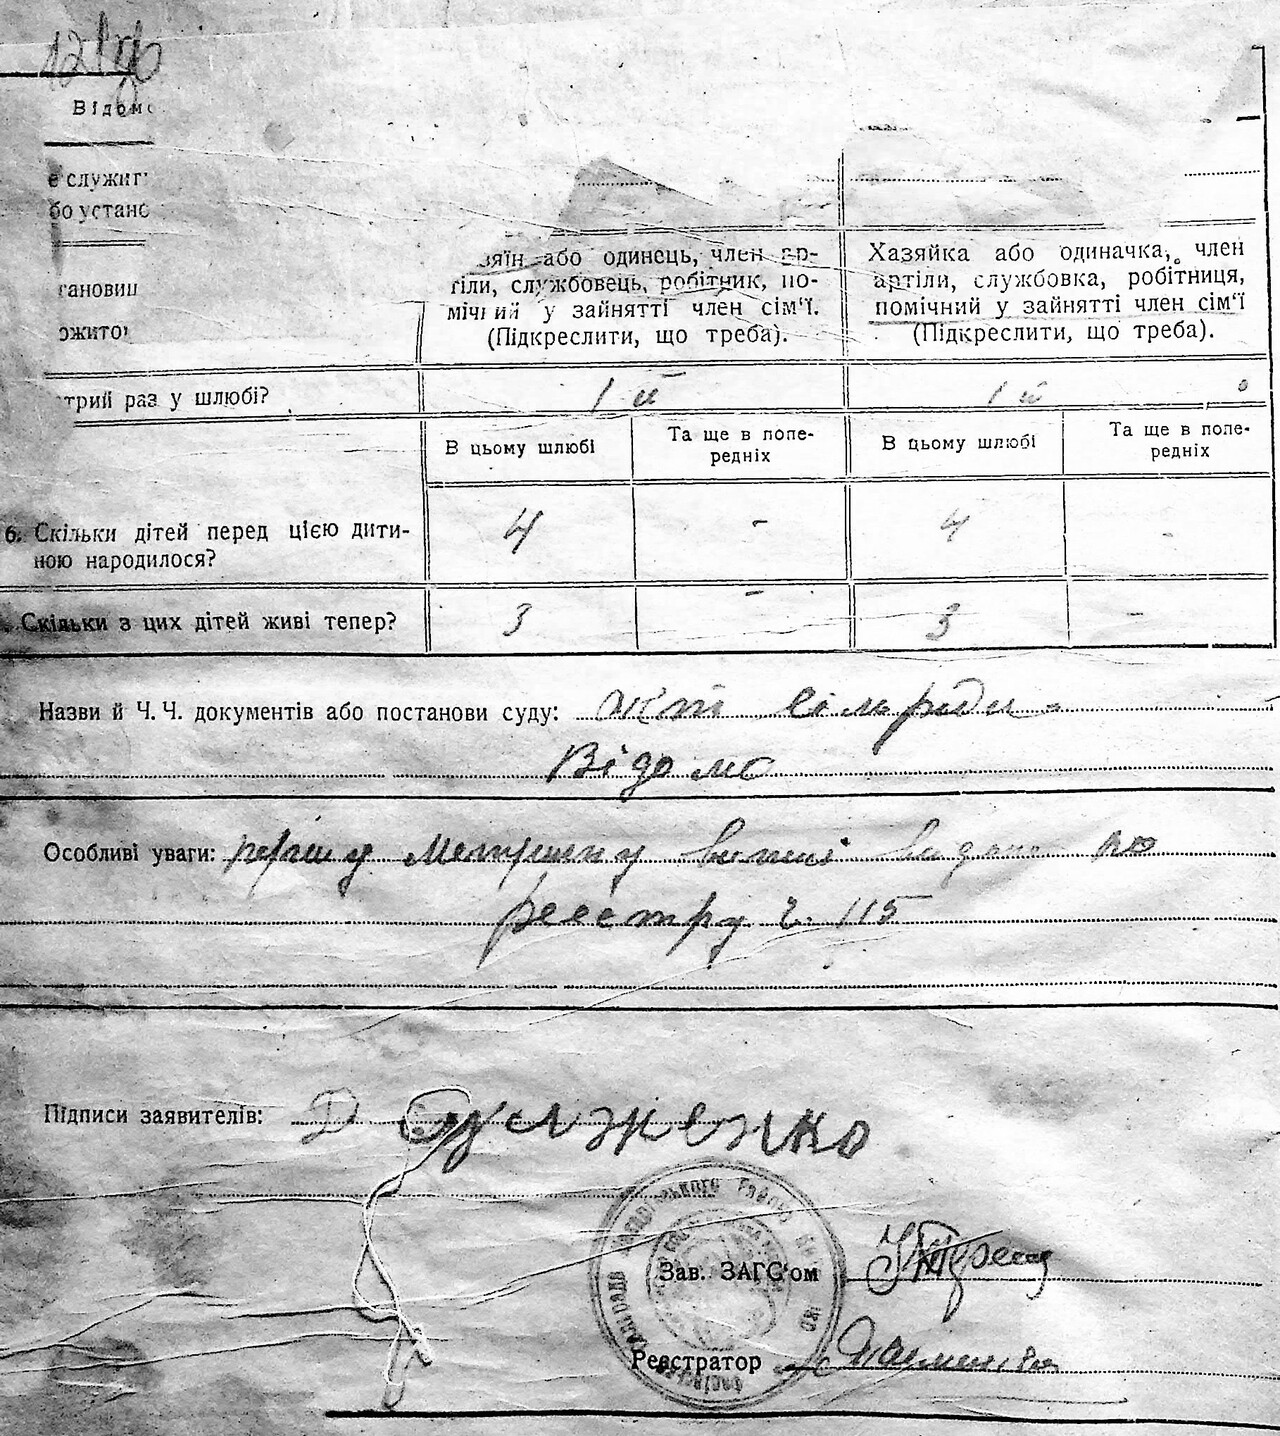 Відомо
е служит
бо устано
тановищ
ожито
зяїн або одинець, член ар-
тіли, службовець, робітник, по-
мічний у зайнятті член сім'ї.
(Підкреслити, що треба).
Хазяйка або одиначка, член
артіли, службовка, робітниця,
помічний у зайнятті член сім'ї
(Підкреслити, що треба).
трий раз у шлюбі?
1й
1й
В цьому шлюбі
Та ще в попе-
редніх
В цьому шлюбі
Та ще в попе-
редніх
6. Скільки дітей перед цією дити-
ною народилося?
4
-
4
-
Скільки з цих дітей живі тепер?
3
-
3
-
Назви й Ч. Ч. документів або постанови суду: акт сільради
Відомо
Особливі уваги: видано по
реєстру ч. 115
Підписи заявителів:
Зав. ЗАГС'ом
Реєстратор